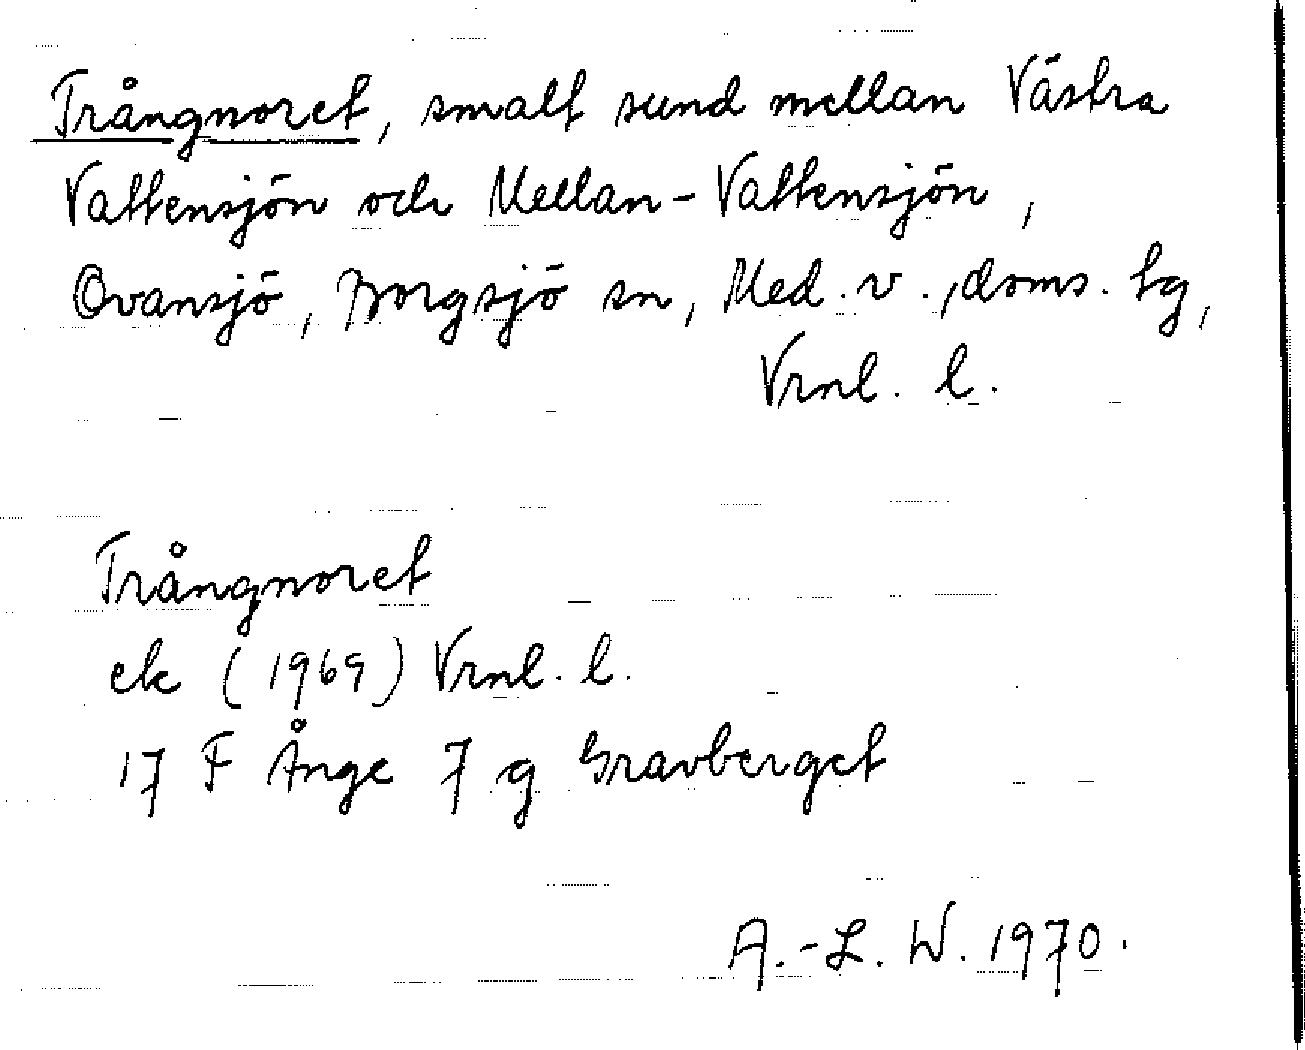 Trångnoret, smalt sund mellan Västra
Vattensjön och Mellan-Vattensjön,
Ovansjö, Borgsjö sn, Med. v., doms. hg,
Vrnl. l.
Trångnoret
ek (1969) Vrnl. l.
17 F Ånge 7 g Gravberget
A.-L. W. 1970.